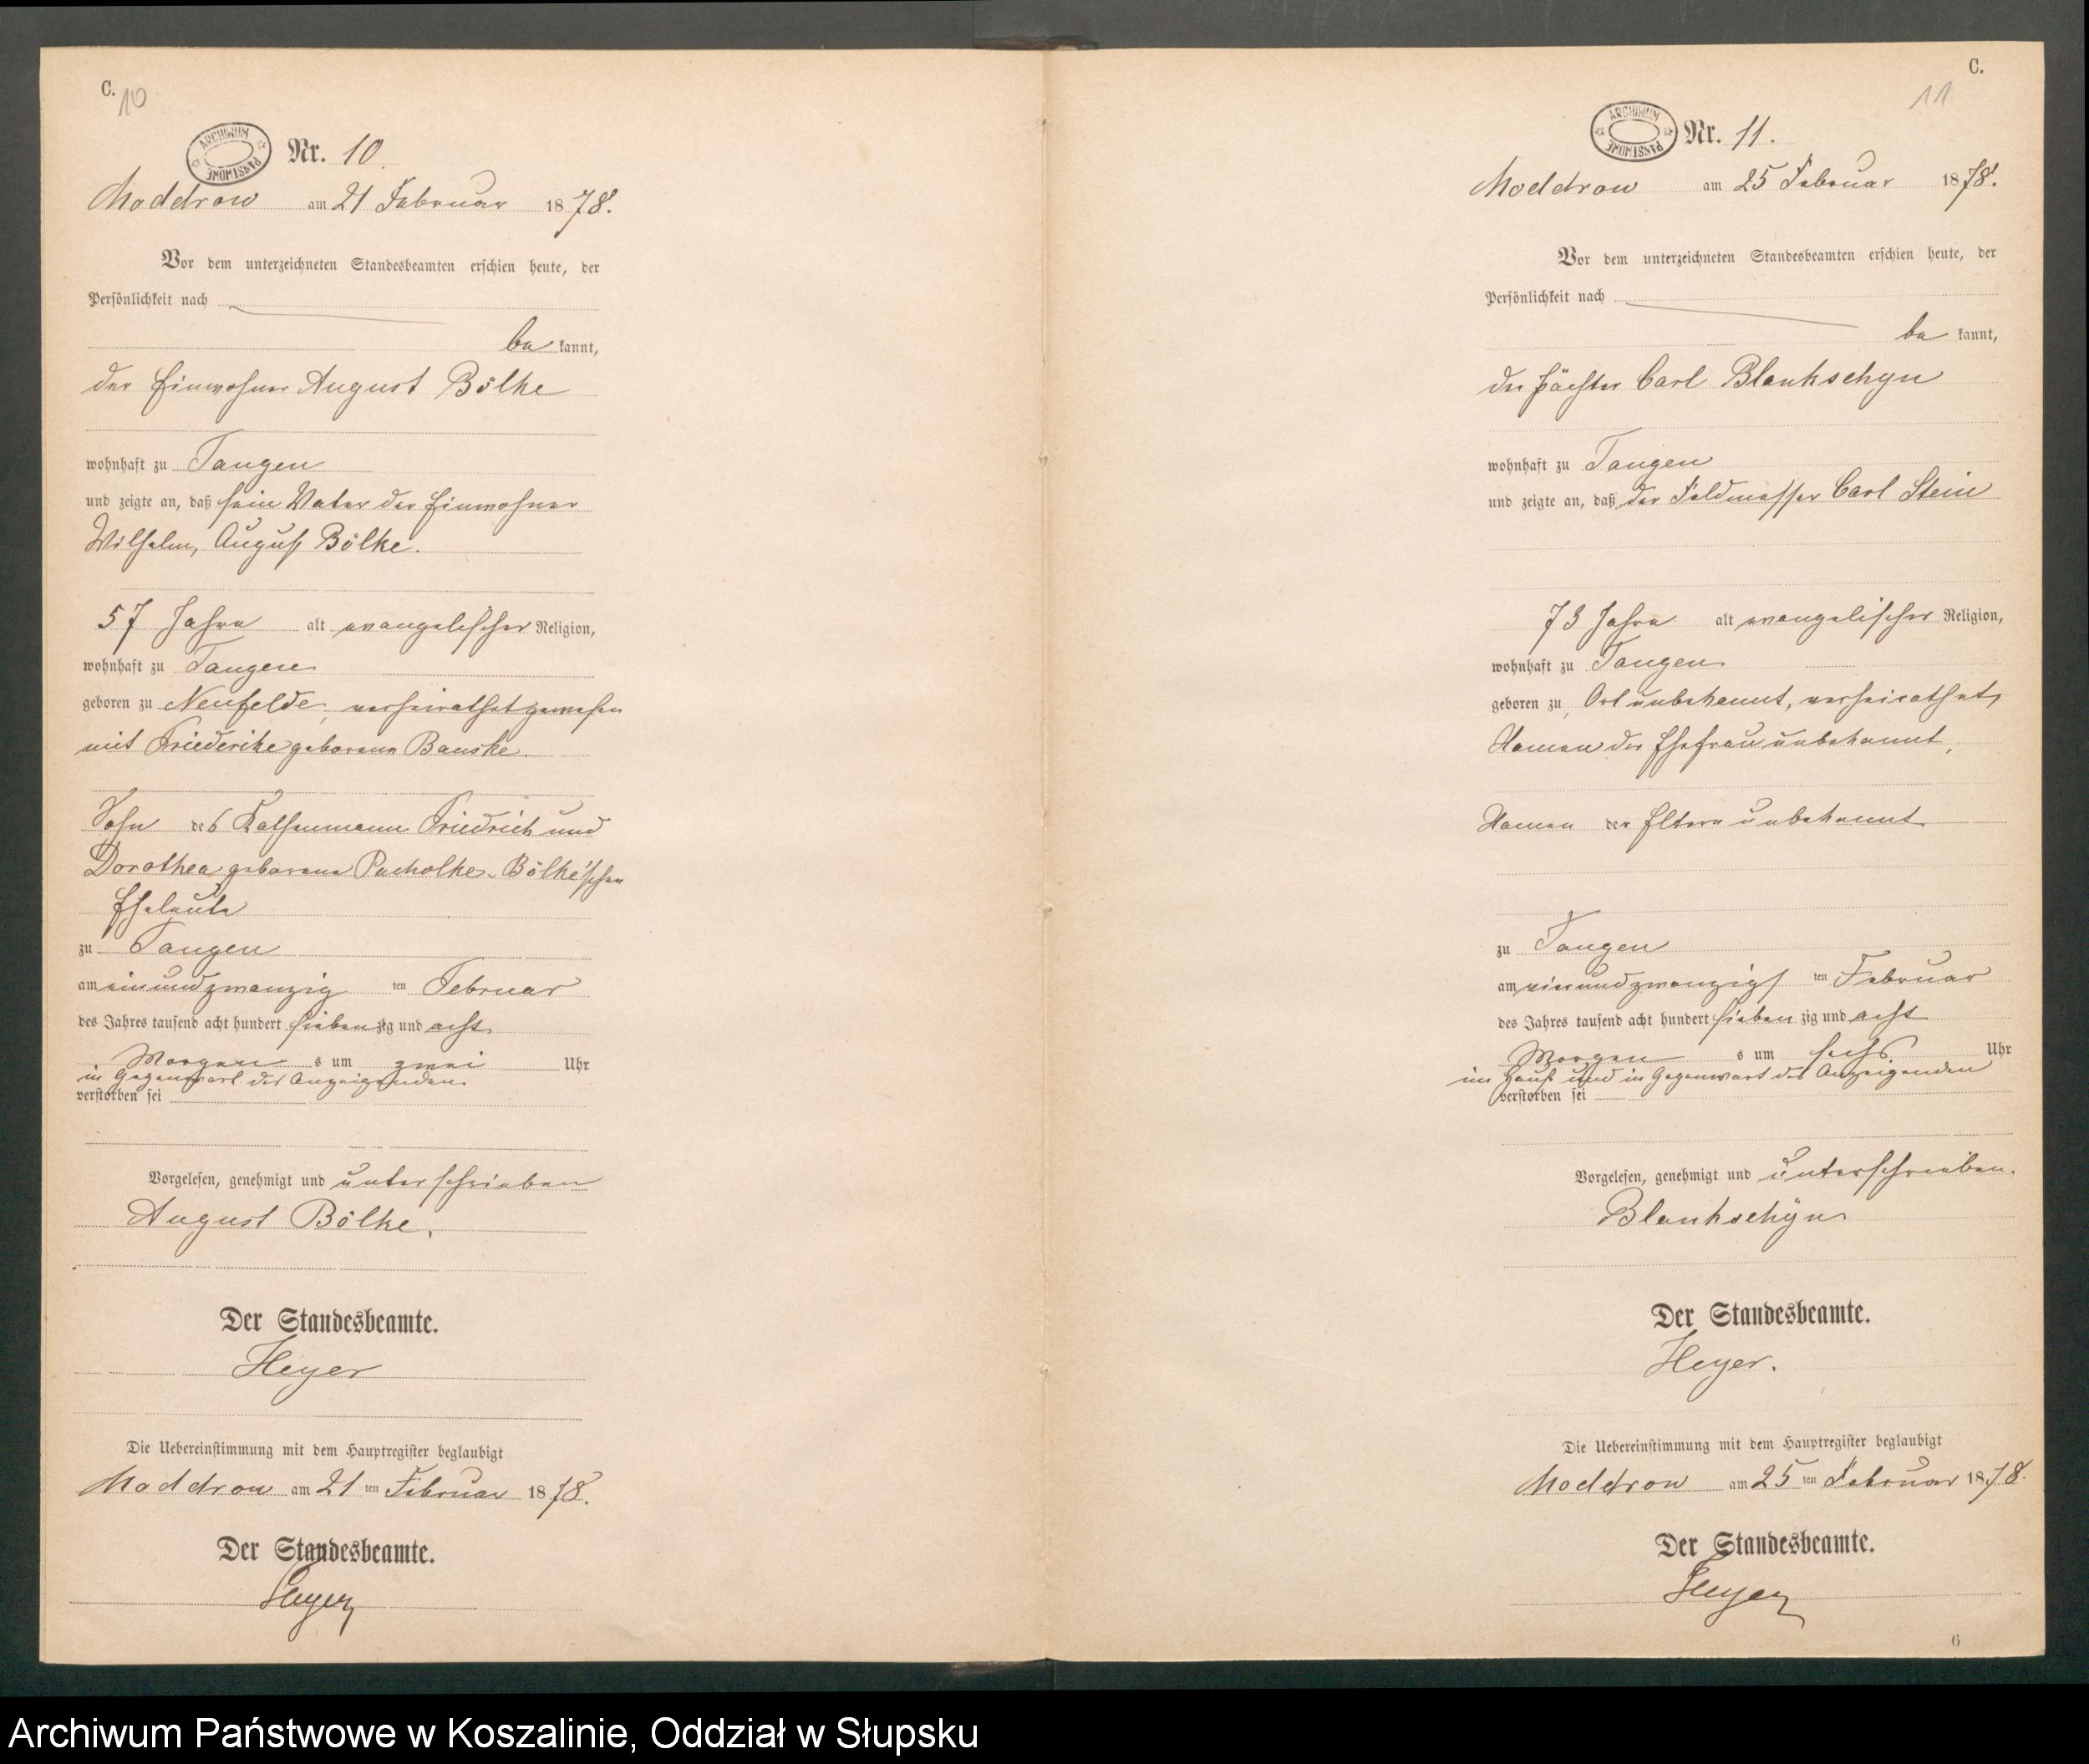 C.
10
ARCHIWUM PAŃSTWOWE
Nr. 10.
Moddrow am 21 Februar 1878.
Vor dem unterzeichneten Standesbeamten erschien heute, der
Persönlichkeit nach
be kannt,
der Einwohner August Bölke
wohnhaft zu Tangen
und zeigte an, daß sein Vater der Einwohner
Wilhelm, August Bölke.
57 Jahre alt evangelischer Religion,
wohnhaft zu Tangen
geboren zu Neufelde, verheirathet gewesen
mit Friederike geborene Banske
Sohn des Kathenmann Friedrich und
Dorothea geborene Pacholke-Bölke'schen
Eheleute
zu Tangen
am einundzwanzig ten Februar
des Jahres tausend acht hundert siebenzig und acht
Morgen s um zwei Uhr
in Gegenwart des Anzeigenden
verstorben sei
Vorgelesen, genehmigt und unterschrieben
August Bölke.
Der Standesbeamte.
Heyer
Die Uebereinstimmung mit dem Hauptregister beglaubigt
Moddrow am 21 ten Februar 1878.
Der Standesbeamte.
Heyer
C.
11
ARCHIWUM PAŃSTWOWE
Nr. 11.
Moddrow am 25 Februar 1878.
Vor dem unterzeichneten Standesbeamten erschien heute, der
Persönlichkeit nach
be kannt,
der Pächter Carl Blankschyn
wohnhaft zu Tangen
und zeigte an, daß der Feldmesser Carl Stein
73 Jahre alt evangelischer Religion,
wohnhaft zu Tangen
geboren zu, Ort unbekannt, verheirathet,
Namen der Ehefrau unbekannt,
Namen der Eltern unbekannt
zu Tangen
am vierundzwanzigs ten Februar
des Jahres tausend acht hundert sieben zig und acht
Morgen s um sechs Uhr
im Hause und in Gegenwart des Anzeigenden
verstorben sei
Vorgelesen, genehmigt und unterschrieben.
Blankschyn
Der Standesbeamte.
Heyer.
Die Uebereinstimmung mit dem Hauptregister beglaubigt
Moddrow am 25 ten Februar 1878.
Der Standesbeamte.
Heyer
6
Archiwum Państwowe w Koszalinie, Oddział w Słupsku